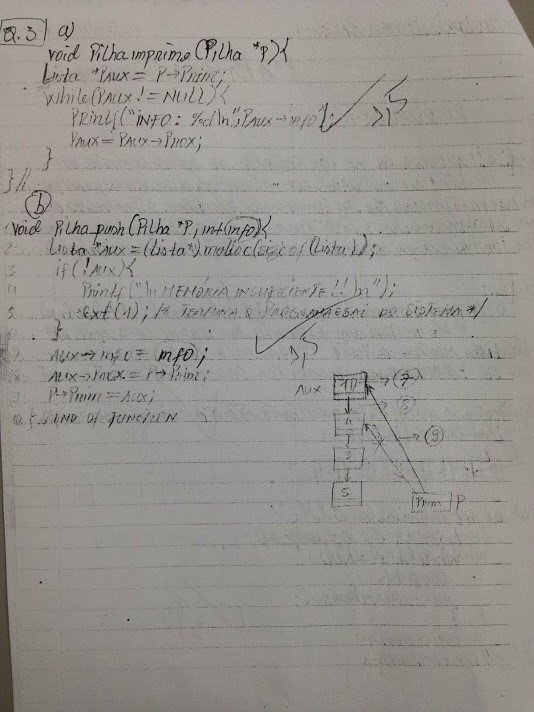 Q.3 a)
void Pilha imprime (Pilha *P){
Lista *PAUX = P→Prim;
while(PAUX != NULL){
Printf("INFO: %d\n", PAUX→info);
PAUX = PAUX→Prox;
}
}//
b
1 void Pilha push(Pilha *P, int info){
2 Lista *AUX = (Lista*) malloc(sizeof(Lista));
3 if(!AUX){
4 Printf("\n MEMÓRIA INSUFICIENTE!! \n");
5 exit(1); /* TERMINA O PROGRAMA E SAI DO SISTEMA */
6 }
7 AUX→info = info;
8 AUX→Prox = P→Prim;
9 P→Prim = AUX;
10 } // END OF FUNCTION
AUX 10 → 7
8
4
3 → 9
5
Prim P